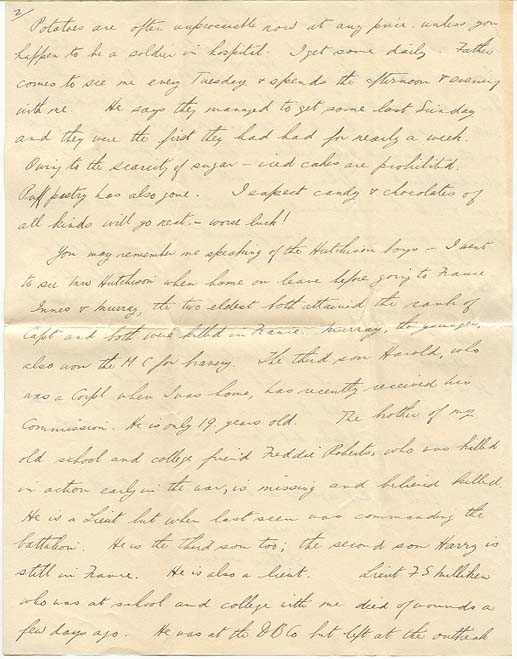 2/
Potatoes are often unprocurable now at any price unless you
happen to be a soldier in hospital. I get some daily. Father
comes to see me every Tuesday & spends the afternoon & evening
with me. He says they managed to get some last Sunday
and they were the first they had had for nearly a week.
Owing to the scarcity of sugar – iced cakes are prohibited.
Puff pastry has also gone. I expect candy & chocolates of
all kinds will go next. – worse luck!
You may remember me speaking of the Hutchison boys – I went
to see Mrs Hutchison when home on leave before going to France.
Innes & Murray, the two eldest both attained the rank of
Capt and both were killed in France. Murray, the younger,
also won the M C for bravery. The third son Harold, who
was a Corpl when I was home, has recently received his
Commission. He is only 19 years old. The brother of my
old school and college friend Freddie Roberts, who was killed
in action early in the war, is missing and believed killed.
He is a Lieut but when last seen was commanding the
battalion. He is the third son too; the second son Harry is
still in France. He is also a lieut. Lieut F S Milliken
who was at school and college with me died of wounds a
few days ago. He was at the D B Co but left at the outbreak